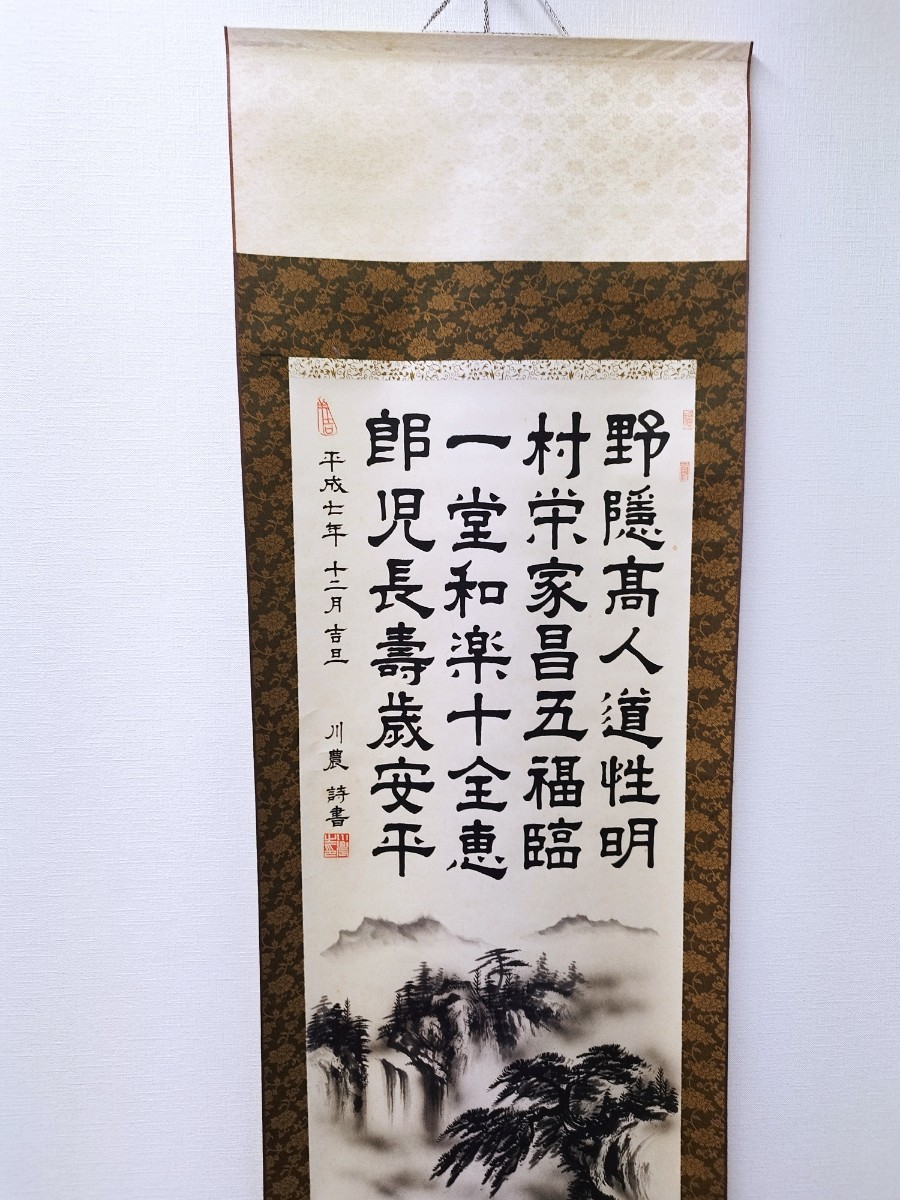 野隱髙人道性明
村栄家昌五福臨
一堂和楽十全恵
郎児長壽歳安平
平成七年 十二月 吉旦 川農 詩書